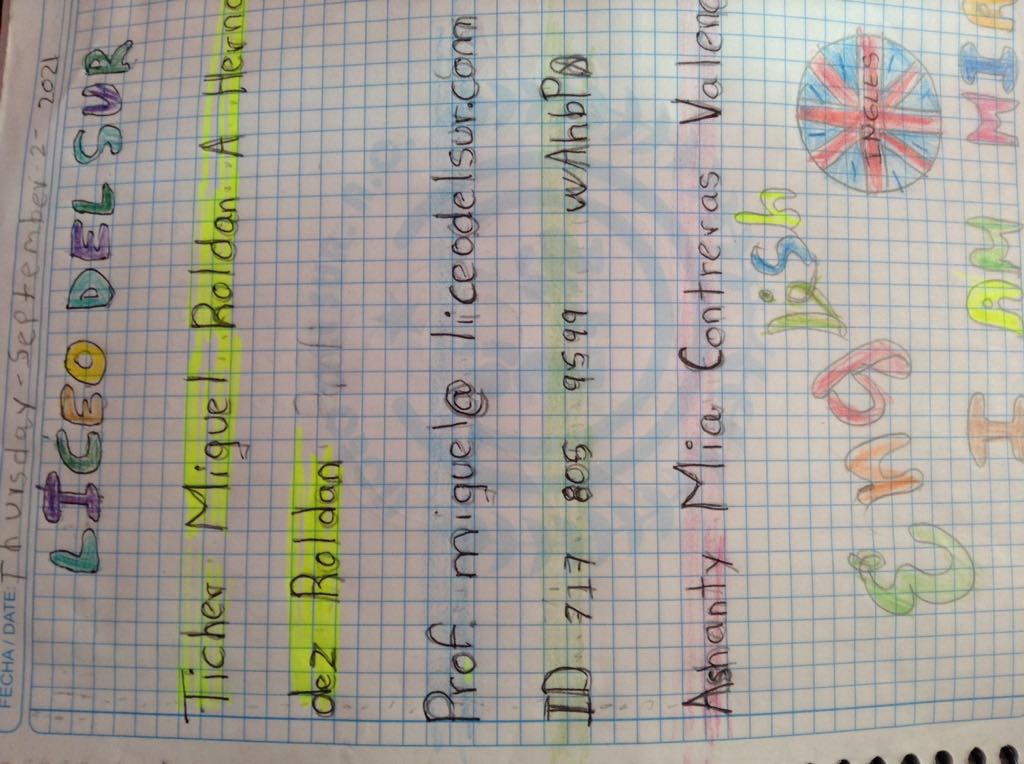 FECHA / DATE: Thursday - September - 2 - 2021
LICEO DEL SUR
Ticher Miguel Roldan A Hernan
dez Roldan
Prof. miguel@ liceodelsur.com
ID 717 805 9599 wAhbP8
Ashanty Mia Contreras Valenc
English
INGLES
I AM MIA